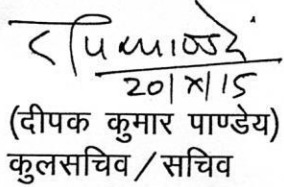 20/X/15
(दीपक कुमार पाण्डेय)
कुलसचिव / सचिव